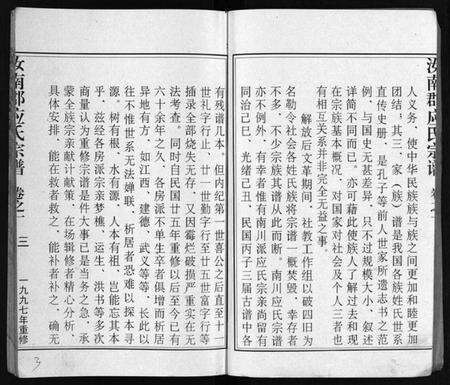 汝南郡应氏宗谱 卷之一
人义务、使中华民族族与族之间更加和睦更加
团结；其三、家（族）谱是我国各族姓氏世系
直传史册，是孔子等前人世家所遗志书之范
例，与国史无甚差异，只不过规模大小，叙述
详简不同而已。亦可藉此使族人了解过去和现
在宗族基本概况，对国家对社会及个人三者也
有相互关系并非完全无益之事。
解放后文革期间，社教工作组以破四旧为
名勒令社会各姓氏族将宗谱一概焚毁，幸存者
不多，不少宗族其谱从此而断。南川应氏宗谱
亦不例外，有幸者惟有南川派应氏宗亲尚留有
同治己巳、光绪己丑、民国丙子三届古谱中各
有残谱几本。但内纪第一世喜公之后直至十一
世礼字行止、廿一世勤字行至廿五世富字行等
插录全部烧失无存，又因霉烂破损严重实在无
法考查。同时自民国廿五年重修以后至今已有
六十余年之久，各房派不单生卒者俱增而析居
异地有方，如江西、建德、武义等等，长此以
往不惟世系无法婵联、析居者恐难以探本寻
源。树有根、水有源、人本有祖，岂能忘其本
乎，兹经各房派宗亲梦樵、运生、洪书等多次
商量认为重修宗谱是件大事已是当务之急，承
蒙全族宗亲献计献策，在场辑修者精心分析，
具体安排，能在救者救之，能补者补之，确无
汝南郡应氏宗谱 卷之一 三 一九九七年重修
3